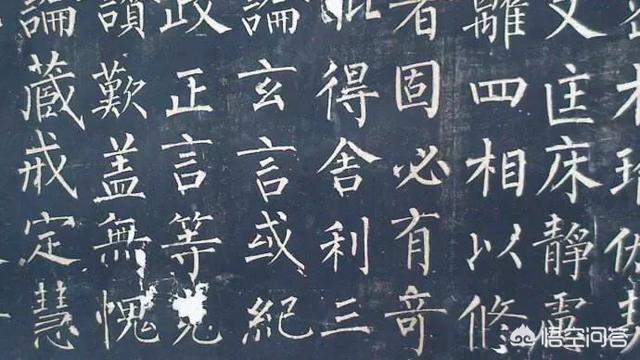 文匡床靜慮
離四相以修
者固必有奇
毗得舍利三
論玄言或紀
政正言等
讚歎盖無愧
論藏戒定慧
悟空问答